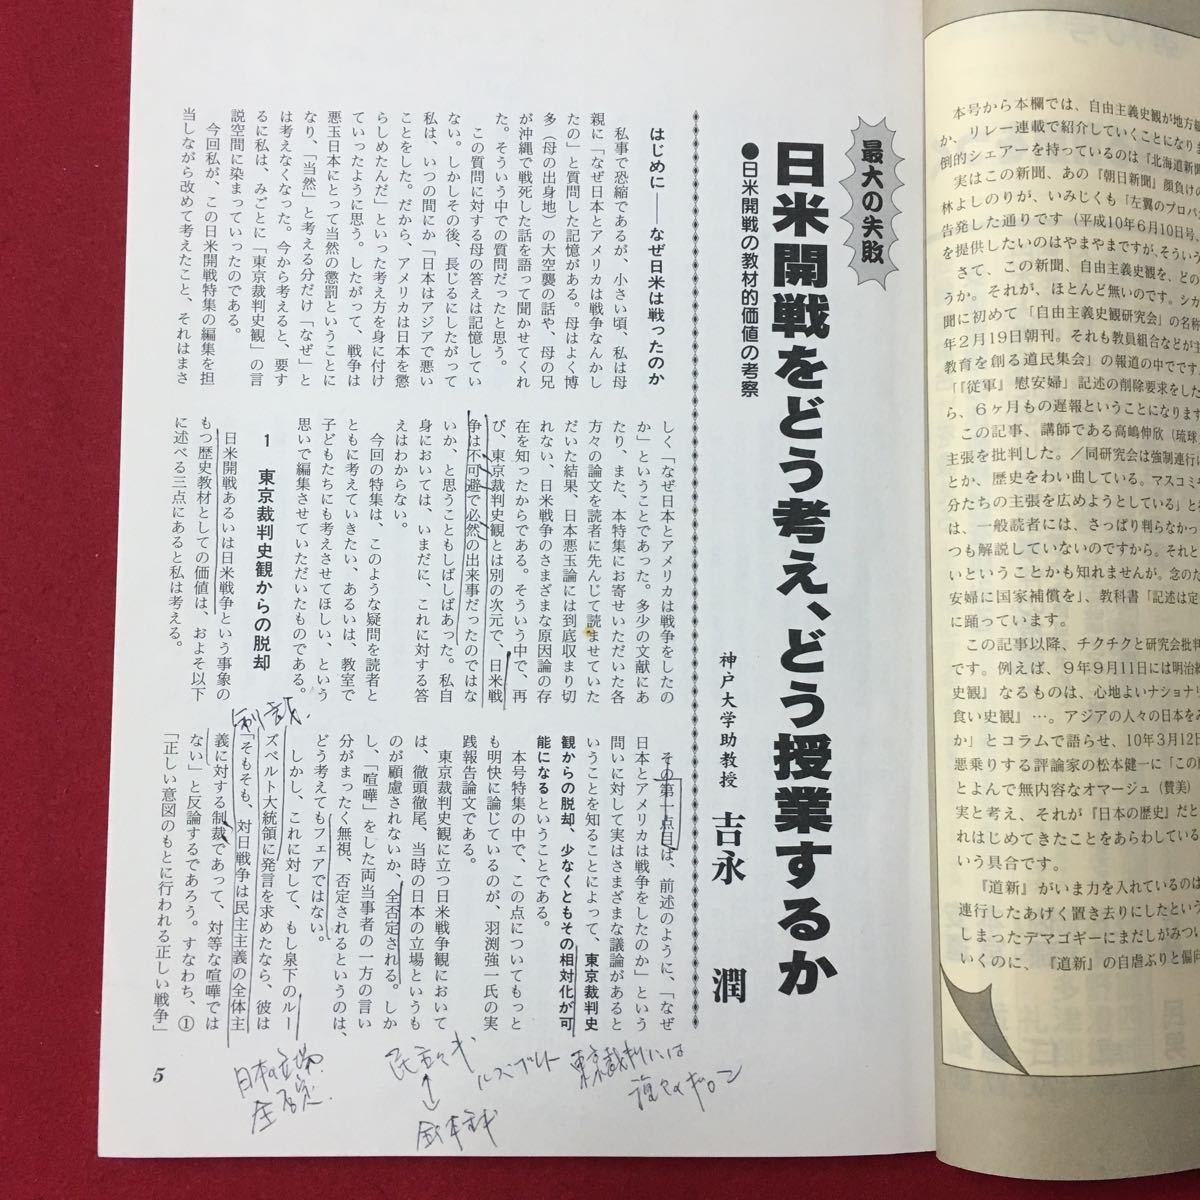 最大の失敗
日米開戦をどう考え、どう授業するか
●日米開戦の教材的価値の考察
神戸大学助教授 吉永 潤
はじめに――なぜ日米は戦ったのか
私事で恐縮であるが、小さい頃、私は母
親に「なぜ日本とアメリカは戦争なんかし
たの」と質問した記憶がある。母はよく博
多（母の出身地）の大空襲の話や、母の兄
が沖縄で戦死した話を語って聞かせてくれ
た。そういう中での質問だったと思う。
この質問に対する母の答えは記憶してい
ない。しかしその後、長じるにしたがって
私は、いつの間にか「日本はアジアで悪い
ことをした。だから、アメリカは日本を懲
らしめたんだ」といった考え方を身に付け
ていったように思う。したがって、戦争は
悪玉日本にとって当然の懲罰ということに
なり、「当然」と考える分だけ「なぜ」と
は考えなくなった。今から考えると、要す
るに私は、みごとに「東京裁判史観」の言
説空間に染まっていったのである。
今回私が、この日米開戦特集の編集を担
当しながら改めて考えたこと、それはまさ
しく「なぜ日本とアメリカは戦争をしたの
か」ということであった。多少の文献にあ
たり、また、本特集にお寄せいただいた各
方々の論文を読者に先んじて読ませていた
だいた結果、日本悪玉論には到底収まり切
れない、日米戦争のさまざまな原因論の存
在を知ったからである。そういう中で、再
び、東京裁判史観とは別の次元で、日米戦
争は不可避で必然の出来事だったのではな
いか、と思うこともしばしばあった。私自
身においては、いまだに、これに対する答
えはわからない。
今回の特集は、このような疑問を読者と
ともに考えていきたい、あるいは、教室で
子どもたちにも考えさせてほしい、という
思いで編集させていただいたものである。
1 東京裁判史観からの脱却
日米開戦あるいは日米戦争という事象の
もつ歴史教材としての価値は、およそ以下
に述べる三点にあると私は考える。
その第一点目は、前述のように、「なぜ
日本とアメリカは戦争をしたのか」という
問いに対して実はさまざまな議論があると
いうことを知ることによって、東京裁判史
観からの脱却、少なくともその相対化が可
能になるということである。
本号特集の中で、この点についてもっと
も明快に論じているのが、羽渕強一氏の実
践報告論文である。
東京裁判史観に立つ日米戦争観において
は、徹頭徹尾、当時の日本の立場というも
のが顧慮されないか、全否定される。しか
し、「喧嘩」をした両当事者の一方の言い
分がまったく無視、否定されるというのは、
どう考えてもフェアではない。
しかし、これに対して、もし泉下のルー
ズベルト大統領に発言を求めたなら、彼は
「そもそも、対日戦争は民主主義の全体主
義に対する制裁であって、対等な喧嘩では
ない」と反論するであろう。すなわち、①
「正しい意図のもとに行われる正しい戦争」
制裁.
日本の立場
全否定
民主主義
↕
全体主義
ルズベルト
東京裁判には
5
本号から本欄では、自由主義史観が地方
か、リレー連載で紹介していくことになりま
倒的シェアーを持っているのは『北海道新聞
実はこの新聞、あの『朝日新聞』顔負けの
林よしのりが、いみじくも「左翼のプロパ
告発した通りです（平成10年6月10日号。
を提供したいのはやまやまですが、そういう
さて、この新聞、自由主義史観を、どの
うか。それが、ほとんど無いのです。シカ
聞に初めて「自由主義史観研究会」の名称
年2月19日朝刊。それも教員組合などがす
教育を創る道民集会」の報道の中でです。
「『従軍』慰安婦」記述の削除要求をした
ら、6ヶ月もの遅報ということになります
この記事、講師である高嶋伸欣（琉球
主張を批判した。／同研究会は強制連行に
とか、歴史をわい曲している。マスコミや
分たちの主張を広めようとしている」と
は、一般読者には、さっぱり判らなかっ
つも解説していないのですから。それと
いということかも知れませんが。念のた
安婦に国家補償を」、教科書「記述は定
に踊っています。
この記事以降、チクチクと研究会批判
です。例えば、9年9月11日には明治維
史観』なるものは、心地よいナショナリ
食い史観』…。アジアの人々の日本をみ
か」とコラムで語らせ、10年3月12日
悪乗りする評論家の松本健一に「この
とよんで無内容なオマージュ（賛美）の
実と考え、それが『日本の歴史』だと
れはじめてきたことをあらわしている
いう具合です。
『道新』がいま力を入れているのは
連行したあげく置き去りにしたという
しまったデマゴギーにまだしがみつい
いくのに、『道新』の自虐ぶりと偏向